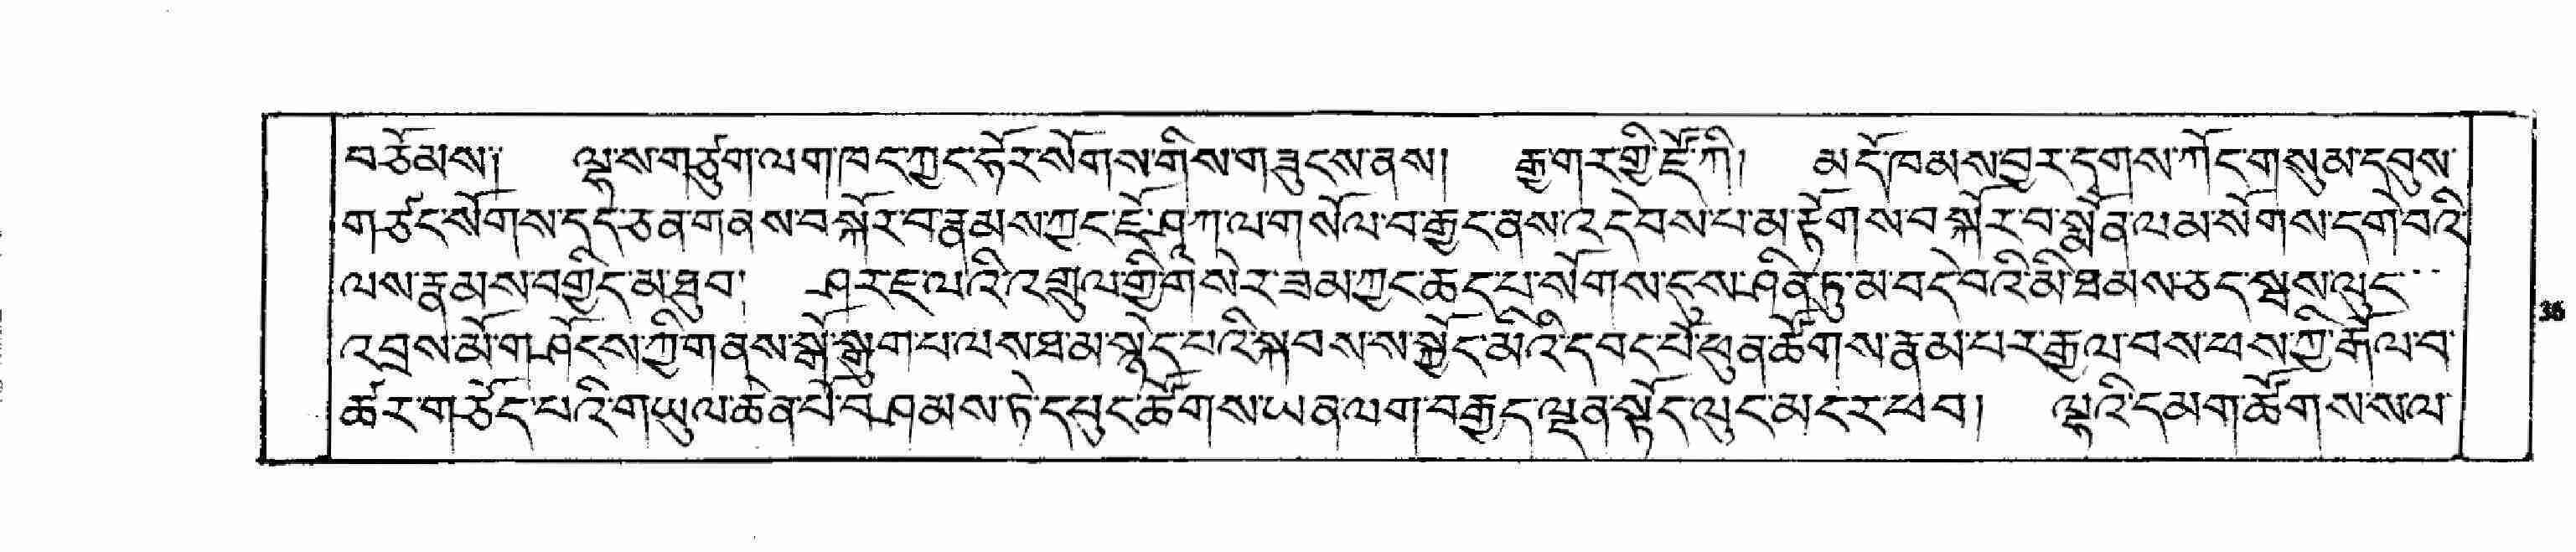 བཅོམས། ལྷ་ས་གཙུག་ལག་ཁང་ཀྱང་ཧོར་སོགས་གིས་གཟུངས་ནས། རྒྱ་གར་གྱི་ཛོ་ཀི། མདོ་ཁམས་བྱར་དྭགས་ཀོང་གསུམ་དབུས་
གཙང་སོགས་དད་ཅན་གནས་བསྐོར་བ་རྣམས་ཀྱང་ཇོ་ཤཱཀ་ལ་གསོལ་བ་རྒྱང་ནས་འདེབས་པ་མ་རྟོགས་བསྐོར་བ་སྨོན་ལམ་སོགས་དགེ་བའི་
ལས་རྣམས་བགྱིད་མ་ཐུབ། ཤར་ཇ་ལའི་འགྲུལ་གྱི་གསེར་ཟམ་ཀྱང་ཆད་པ་སོགས་དུས་ཤིན་ཏུ་མ་བདེ་བའི་མི་ཐམས་ཅད་སྤས་ལུད་
འབྲས་མོ་གཤོངས་ཀྱི་གནས་སྒོ་སྒྲུག་པ་ལས་ཐམ་སྙེད་པའི་སྐབས་ས་སྐྱོང་མིའི་དབང་པོ་ཕུན་ཚོགས་རྣམ་པར་རྒྱལ་བས་ཕས་ཀྱི་རྒོལ་བ་
ཚར་གཅོད་པའི་གཡུལ་ཆེན་པོ་བཤམས་ཏེ་དཔུང་ཚོགས་ཡན་ལག་བརྒྱད་ལྡན་སྟོད་ལུང་མདར་ཕབ། ལྷའི་དམག་ཚོགས་སལ་
36